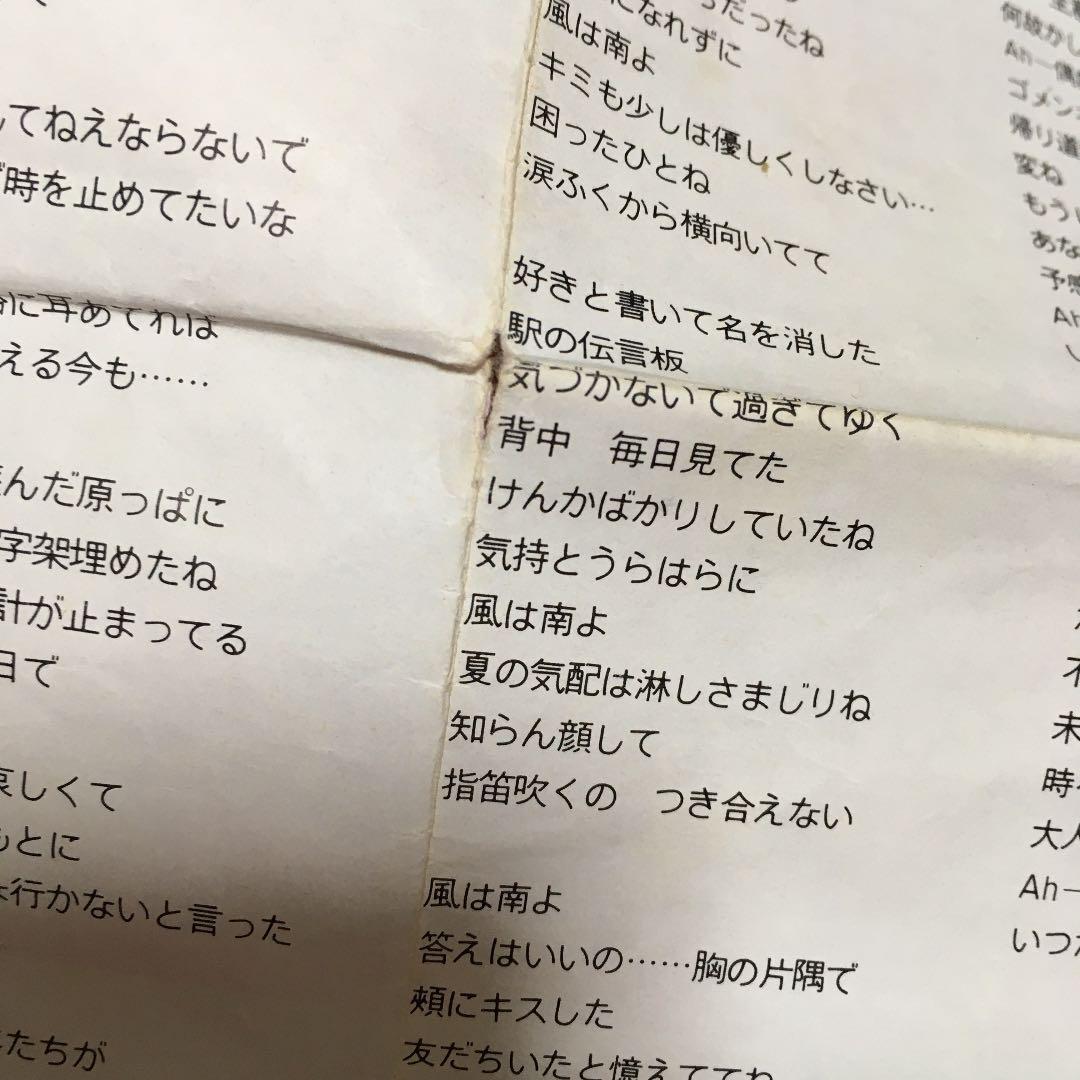 てねえならないで
時を止めてたいな
に耳あてれば
える今も……
んだ原っぱに
字架埋めたね
計が止まってる
日で
哀しくて
もとに
行かないと言った
たちが
だったね
になれずに
風は南よ
キミも少しは優しくしなさい…
困ったひとね
涙ふくから横向いてて
好きと書いて名を消した
駅の伝言板
気づかないで過ぎてゆく
背中　毎日見てた
けんかばかりしていたね
気持とうらはらに
風は南よ
夏の気配は淋しさまじりね
知らん顔して
指笛吹くの　つき合えない
風は南よ
答えはいいの……胸の片隅で
頬にキスした
友だちいたと憶えててね
何故かし
Ah一偶
ゴメン
帰り道
変ね
もう
あな
予感
Ah
し
不
未
時
大人
Ah一
いつ